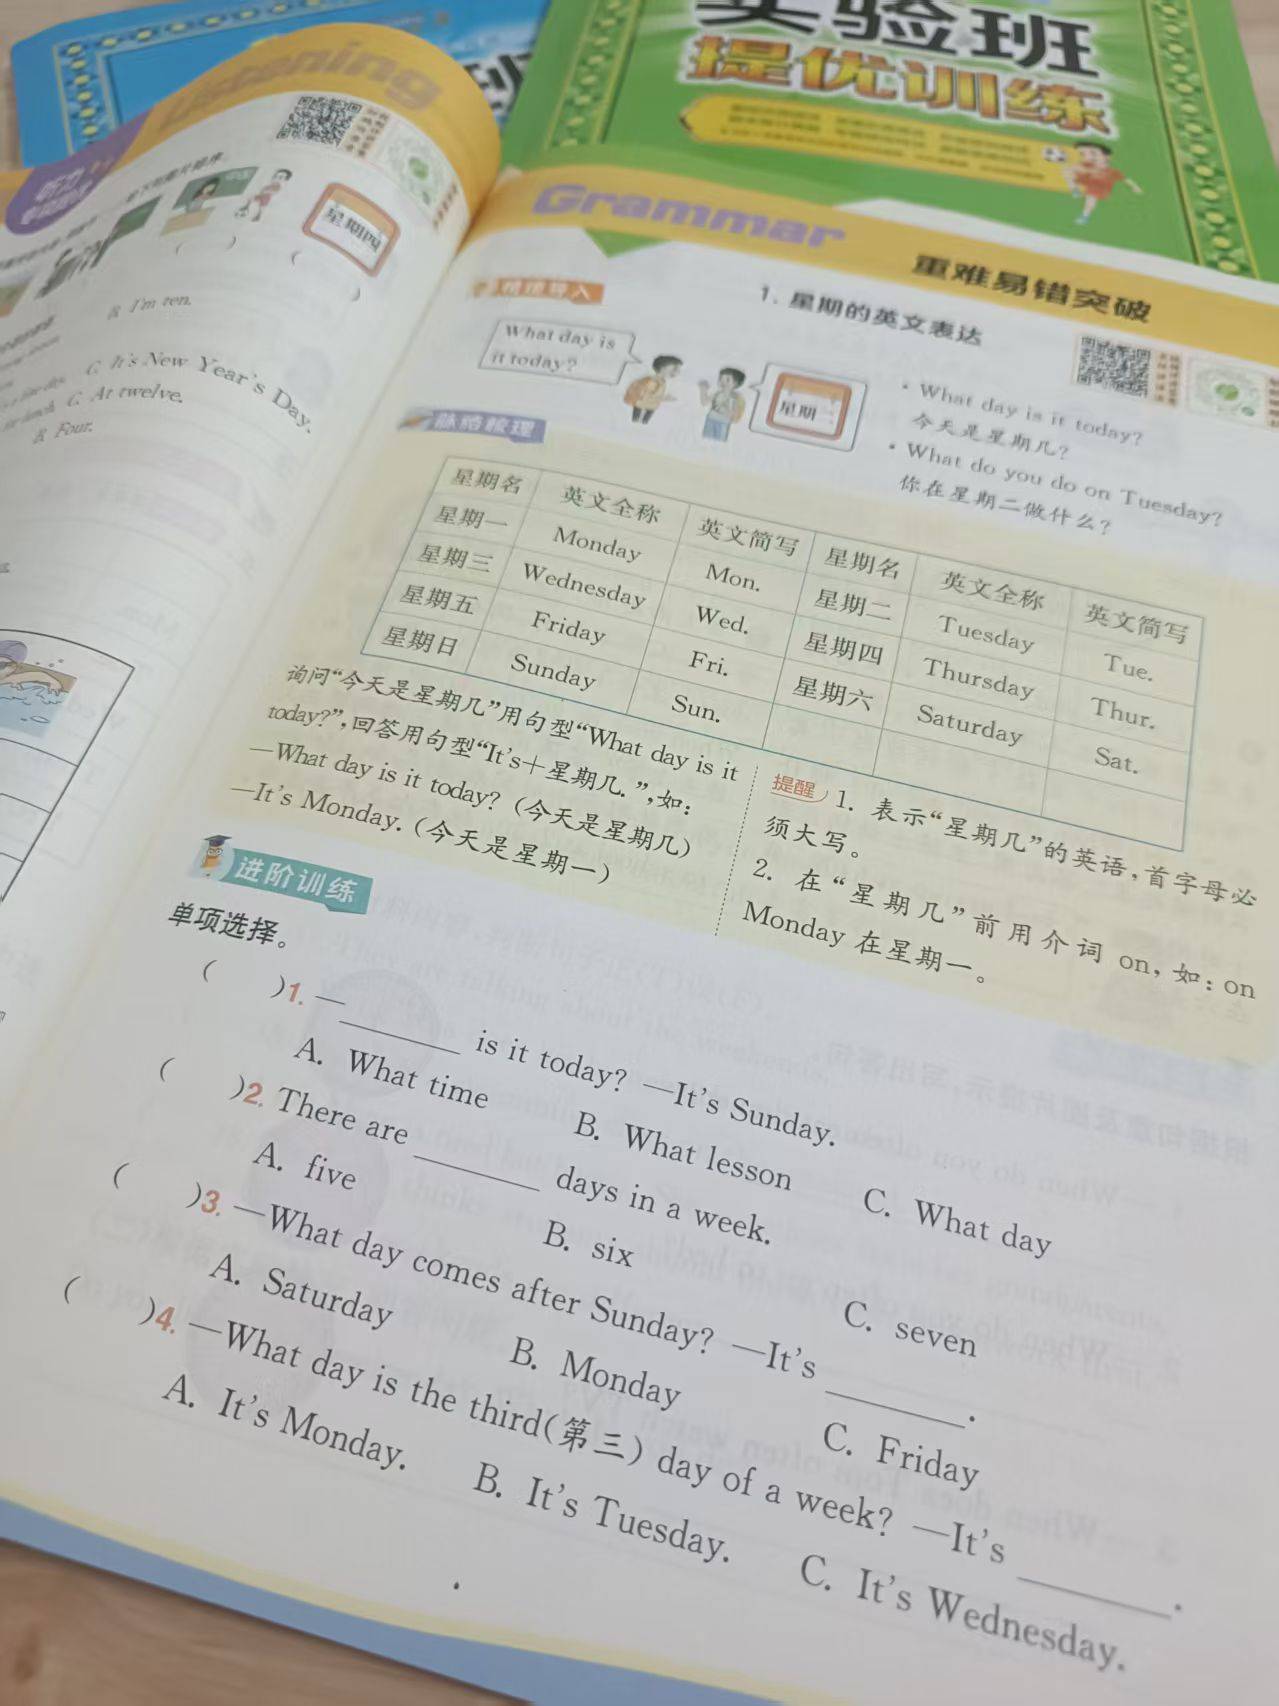 实验班
提优训练
Listening
听力
星期四
B. I'm ten.
C. It's New Year's Day.
C. At twelve.
B. Four.
Grammar
重难易错突破
情境导入
1. 星期的英文表达
What day is
it today?
星期二
• What day is it today?
今天是星期几?
• What do you do on Tuesday?
你在星期二做什么?
脉络梳理
星期名 英文全称 英文简写 星期名 英文全称 英文简写
星期一 Monday Mon. 星期二 Tuesday Tue.
星期三 Wednesday Wed. 星期四 Thursday Thur.
星期五 Friday Fri. 星期六 Saturday Sat.
星期日 Sunday Sun.
询问“今天是星期几”用句型“What day is it
today?”,回答用句型“It's+星期几.”,如:
—What day is it today? (今天是星期几)
—It's Monday. (今天是星期一)
提醒 1. 表示“星期几”的英语,首字母必
须大写。
2. 在“星期几”前用介词 on, 如: on
Monday 在星期一。
进阶训练
单项选择。
( )1. —______ is it today? —It's Sunday.
A. What time B. What lesson C. What day
( )2. There are ______ days in a week.
A. five B. six C. seven
( )3. —What day comes after Sunday? —It's ______.
A. Saturday B. Monday C. Friday
( )4. —What day is the third(第三) day of a week? —It's ______.
A. It's Monday. B. It's Tuesday. C. It's Wednesday.